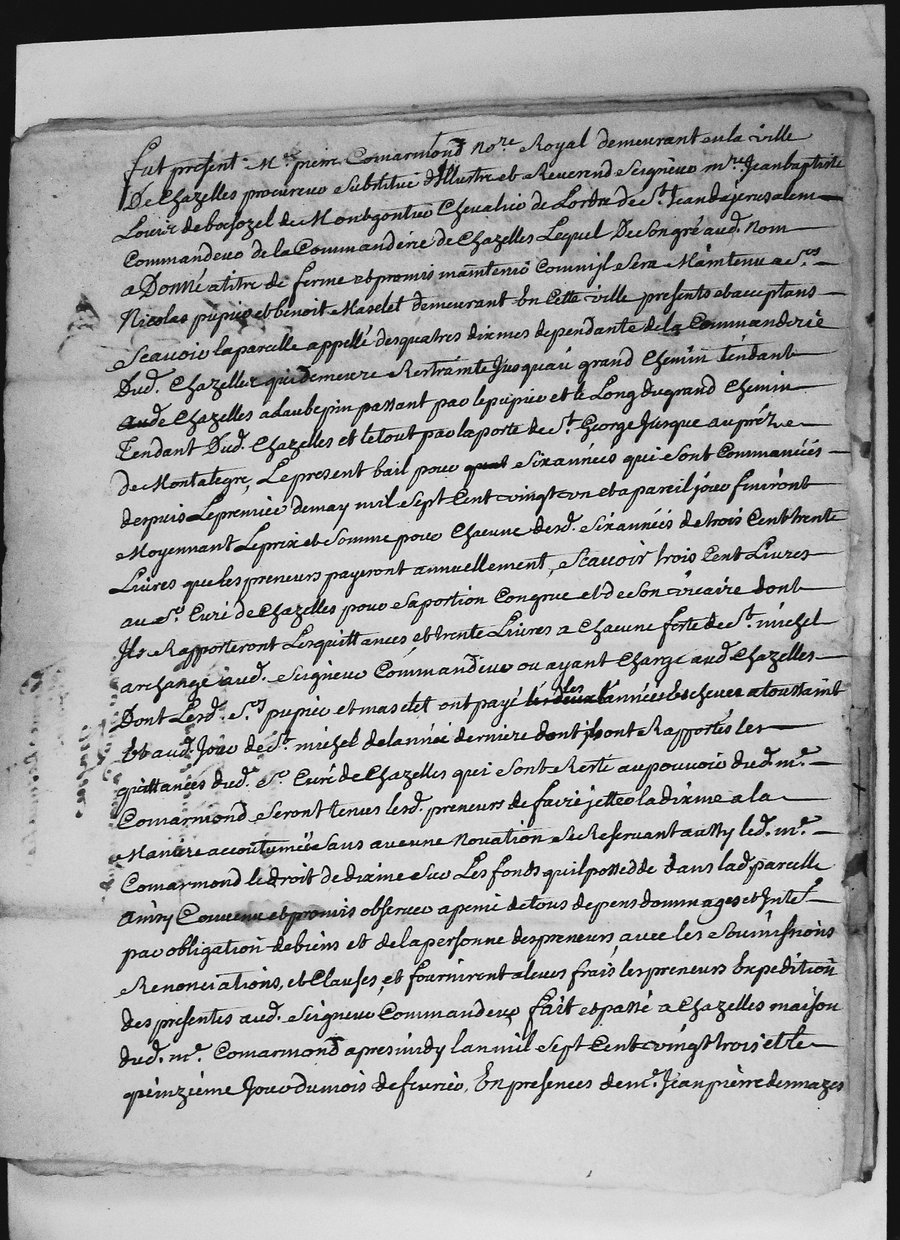 fut present Me pierre Comarmond nore Royal demeurant en la ville
De Chazelles procureur substitué d'Illustre et Reverend Seigneur mre Jean baptiste
Louis de bocsozel de Montgontier Chevalier de Lordre de St Jean de jerusalem
Commandeur de la Commanderie de Chazelles Lequel De son gré aud. nom
a Donné a titre de ferme et promis maintenir Comm'il sera Maintenu a Srs
Nicolas pupier et benoit Maselet demeurant En Cette ville presents et acceptans
Scauoir la parcelle appellé des quatres dixmes dependante de la Commanderie
Dud. Chazelles qui demeure Restrainte Jusqu'au grand Chemin tendant
de Chazelles a Laubepin passant par le pupier et le Long du grand Chemin
Tendant Dud. Chazelles et le tout par la porte de St George Jusque au préz
de Montalegre, Le present bail pour six années qui sont Commancées
despuis Le premier de may mil sept Cent vingt vn et a pareil jour finiront
Moyennant Le prix et somme pour Chacune desd. six années de trois Cent trente
Liures que les preneurs payeront annuellement, Scauoir trois Cent Liures
au Sr Curé de Chazelles pour sa portion Congrue et de son vicaire dont
Ils Rapporteront Les quittances et trente Liures a Chacune feste de St michel
archange aud. Seigneur Commandeur ou ayant Charge aud. Chazelles
Dont Lesd. Srs pupier et maselet ont payé les l'année Escheue a toussaint
Et aud. Jour de St michel de l'année derniere dont ils ont Rapportés les
quittances dud. Sr Curé de Chazelles qui sont Resté au pouuoir dud. me
Comarmond Seront tenus lesd. preneurs de faire jetter la dixme a la
Maniere accoutumée sans aucune Nouation se Reseruant aussy led. me
Comarmond le droit de dixme sur Les fonds qu'il possedde dans lad. parcelle
ainsy Conuenu et promis obseruer a peine de tous depens dommages et Intests
par obligation de biens et de la personne des preneurs, auec les soumissions
Renonciations, et Clauses, et fourniront a leurs frais les preneurs Expedition
des presentes aud. Seigneur Commandeur, fait et passé a Chazelles maison
dud. me Comarmond apres midy l'an mil sept Cent vingt trois et le
quinzieme Jour du mois de feurier, En presences de me Jean pierre denmazes